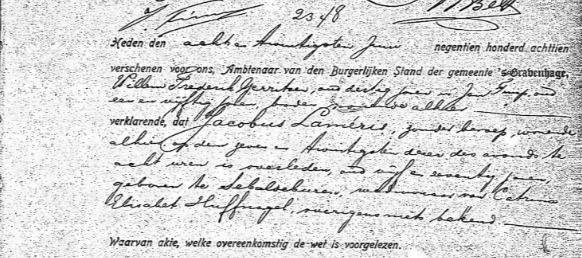 2348
Heden den acht en twintigsten Juni negentien honderd achttien
verschenen voor ons, Ambtenaar van den Burgerlijken Stand der gemeente 's-Gravenhage,
Willem Frederik Gerritsen, oud dertig jaren en Jan
een en vijftig jaren, beiden
verklarende, dat Jacobus Laméris, zonder beroep, wonende
alhier, op den zeven en twintigsten dezer des avonds te
acht ure is overleden, oud vijf en zeventig jaren,
geboren te weduwnaar van Catrina
Elisabet Huffnagel, overigens niets bekend.
Waarvan akte, welke overeenkomstig de wet is voorgelezen.